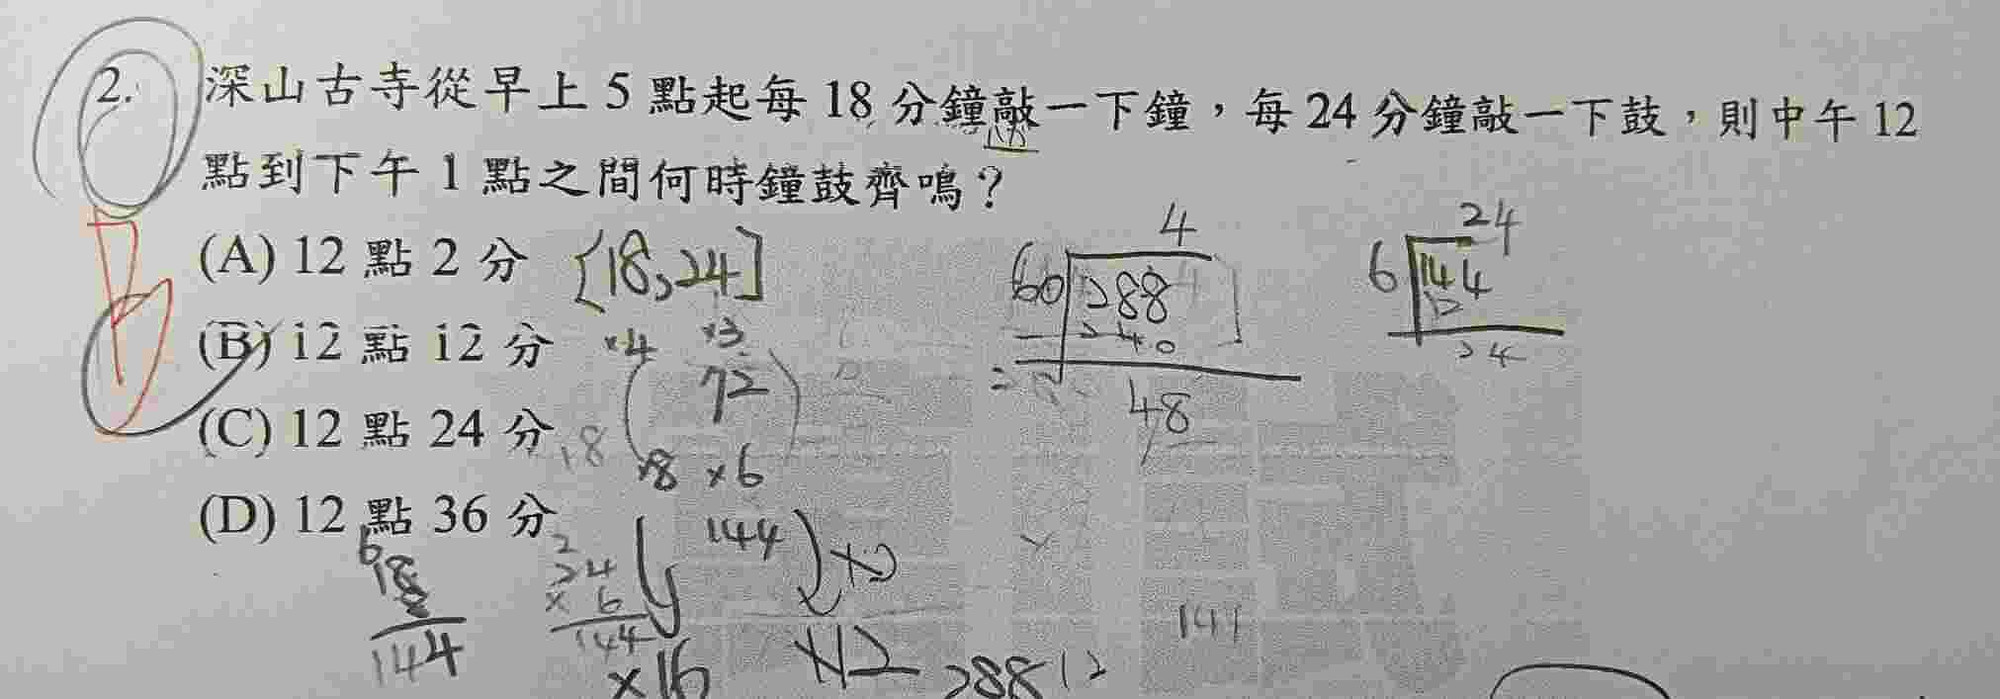 2. 深山古寺從早上 5 點起每 18 分鐘敲一下鐘，每 24 分鐘敲一下鼓，則中午 12
點到下午 1 點之間何時鐘鼓齊鳴？
(A) 12 點 2 分
[18,24]
(B) 12 點 12 分
×4 ×3
72
(C) 12 點 24 分
18
×8 ×6
(D) 12 點 36 分
144
×2
×16
×12
288
4
60 288
240
48
24
6 144
12
24
6
18
8
144
2
24
× 6
144